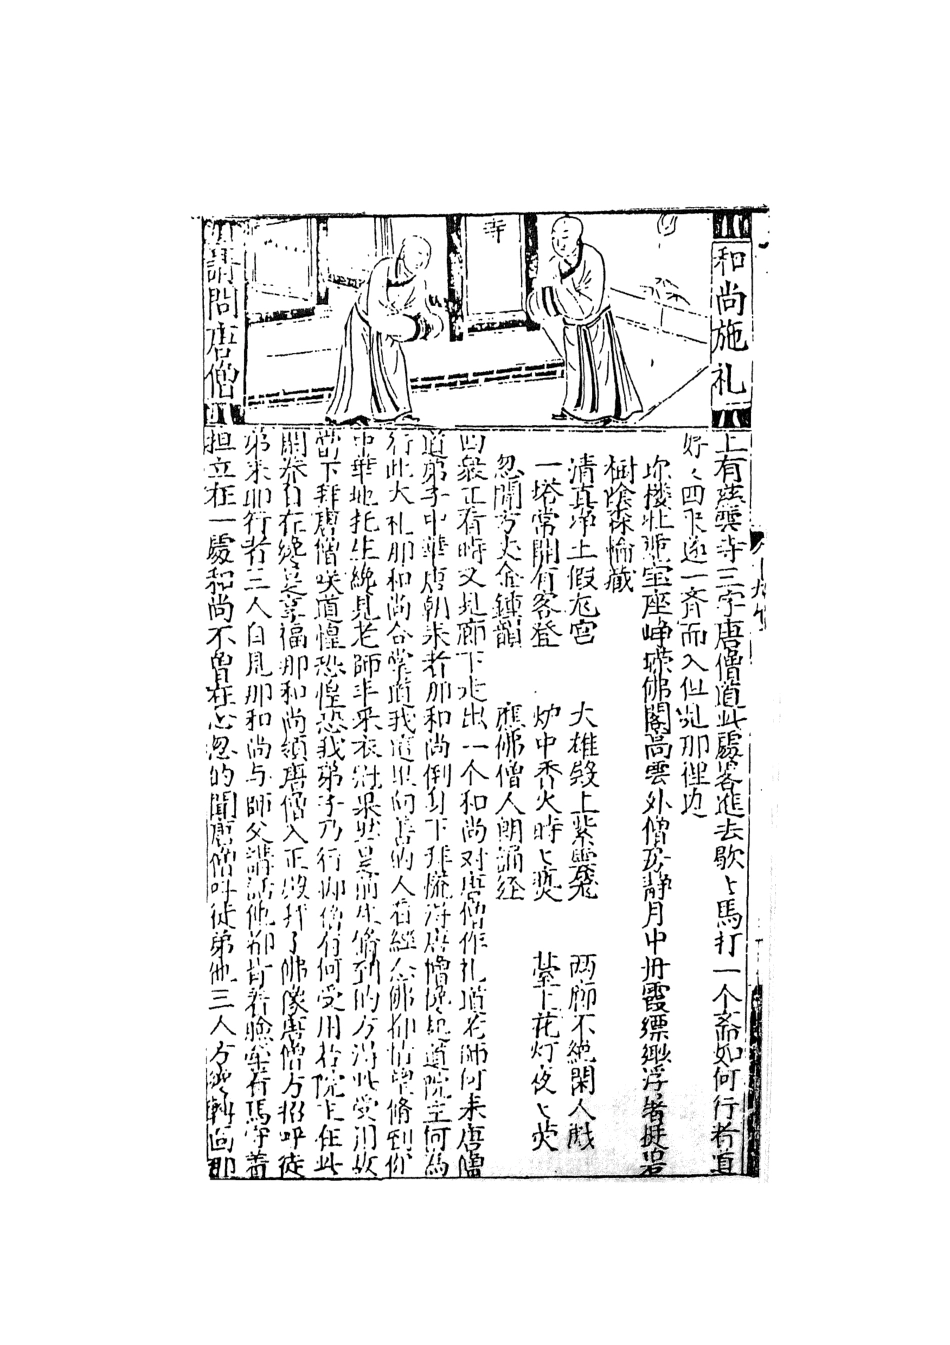 和尚施礼
請問唐僧
寺
上有慈雲寺三字唐僧道此處畧進去歇〻馬打一个斎如何行者道
好〻四人遂一齊而入但見那裡边
珎楼壯宝座崢嶸佛閣高雲外僧房静月中丹霞縹緲浮屠挺岩
樹陰森輪藏
清真净土假宮 大雄殿上紫雲飛 両廊不絶閑人戲
一塔常開有客登 炉中香火時〻爇 臺上花灯夜〻熒
忽聞方丈金鍾韻 應佛僧人朗誦经
四衆正看時又見廊下走出一个和尚对唐僧作礼道老師何来唐僧
道弟子中華唐朝来者那和尚倒身下拜慌得唐僧攙起道院主何為
行此大礼那和尚合掌道我這里向善的人看經念佛都指望修到你
中華地托生纔見老師丰采衣冠果然是前生修到的方得此受用故
當下拜唐僧咲道惶恐惶恐我弟子乃行脚僧有何受用若院主在此
閑养自在纔是享福那和尚領唐僧入正殿拜了佛像唐僧方招呼徒
弟来耶行者三人自見那和尚与師父講話他都背着臉牽着馬守着
担立在一處和尚不曾在心忽的聞唐僧叫徒弟他三人方纔轉面那